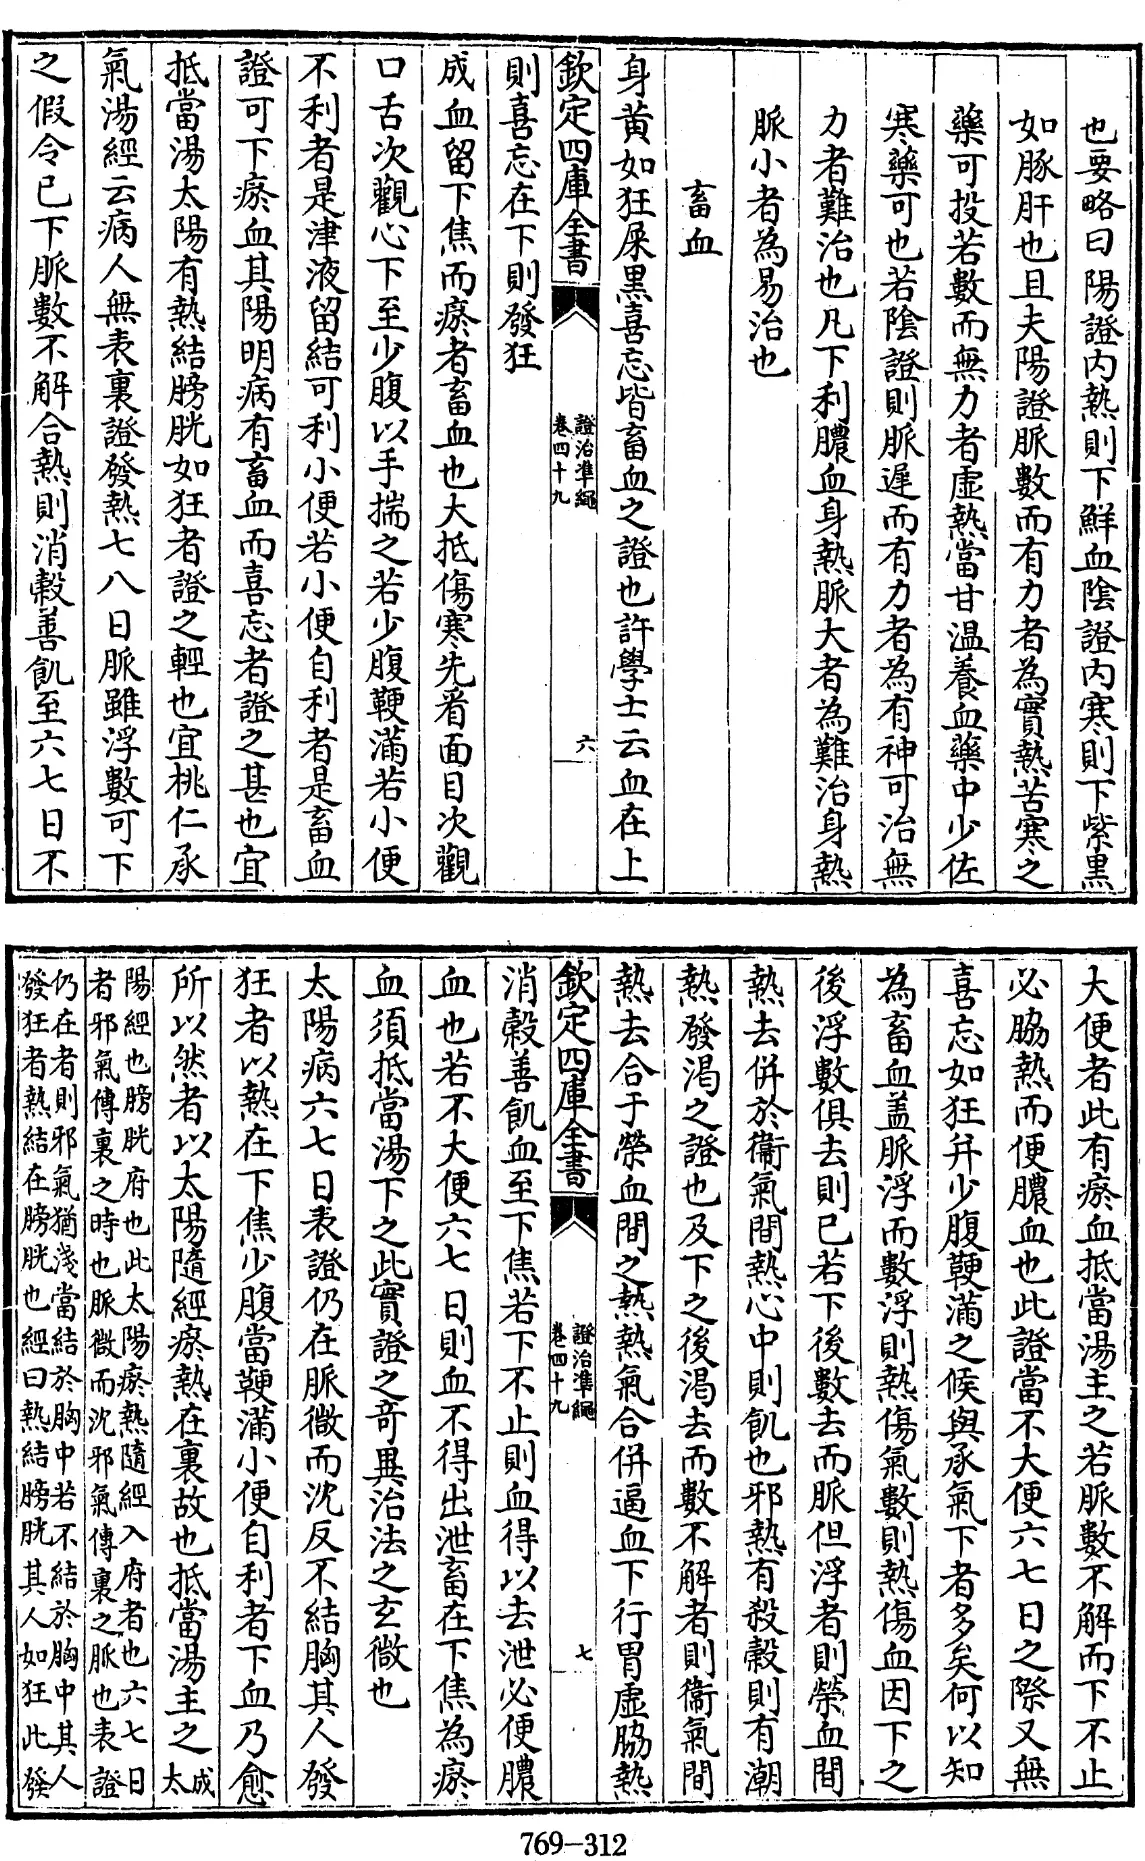 也要略曰陽證内熱則下鮮血陰證内寒則下紫黒
如豚肝也且夫陽證脈數而有力者為實熱苦寒之
藥可投若數而無力者虚熱當甘温養血藥中少佐
寒藥可也若陰證則脈遲而有力者為有神可治無
力者難治也凡下利膿血身熱脈大者為難治身熱
脈小者為易治也
畜血
身黄如狂屎黒喜忘皆畜血之證也許學士云血在上
欽定四庫全書
證治凖繩
卷四十九
六
則喜忘在下則發狂
成血留下焦而瘀者畜血也大抵傷寒先看面目次觀
口舌次觀心下至少腹以手揣之若少腹鞕滿若小便
不利者是津液留結可利小便若小便自利者是畜血
證可下瘀血其陽明病有畜血而喜忘者證之甚也宜
抵當湯太陽有熱結膀胱如狂者證之輕也宜桃仁承
氣湯經云病人無表裏證發熱七八日脈雖浮數可下
之假令已下脈數不解合熱則消穀善飢至六七日不
大便者此有瘀血抵當湯主之若脈數不解而下不止
必脇熱而便膿血也此證當不大便六七日之際又無
喜忘如狂并少腹鞕滿之候與承氣下者多矣何以知
為畜血盖脈浮而數浮則熱傷氣數則熱傷血因下之
後浮數俱去則已若下後數去而脈但浮者則榮血間
熱去併於衞氣間熱心中則飢也邪熱有殺穀則有潮
熱發渴之證也及下之後渴去而數不解者則衞氣間
熱去合于榮血間之熱熱氣合併逼血下行胃虚脇熱
欽定四庫全書
證治凖繩
卷四十九
七
消穀善飢血至下焦若下不止則血得以去泄必便膿
血也若不大便六七日則血不得出泄畜在下焦為瘀
血須抵當湯下之此實證之竒異治法之玄微也
太陽病六七日表證仍在脈微而沈反不結胸其人發
狂者以熱在下焦少腹當鞕滿小便自利者下血乃愈
所以然者以太陽隨經瘀熱在裏故也抵當湯主之
成太
陽經也膀胱府也此太陽瘀熱隨經入府者也六七日
者邪氣傳裏之時也脈微而沈邪氣傳裏之脈也表證
仍在者則邪氣猶淺當結於胸中若不結於胸中其人
發狂者熱結在膀胱也經曰熱結膀胱其人如狂此發
769-312